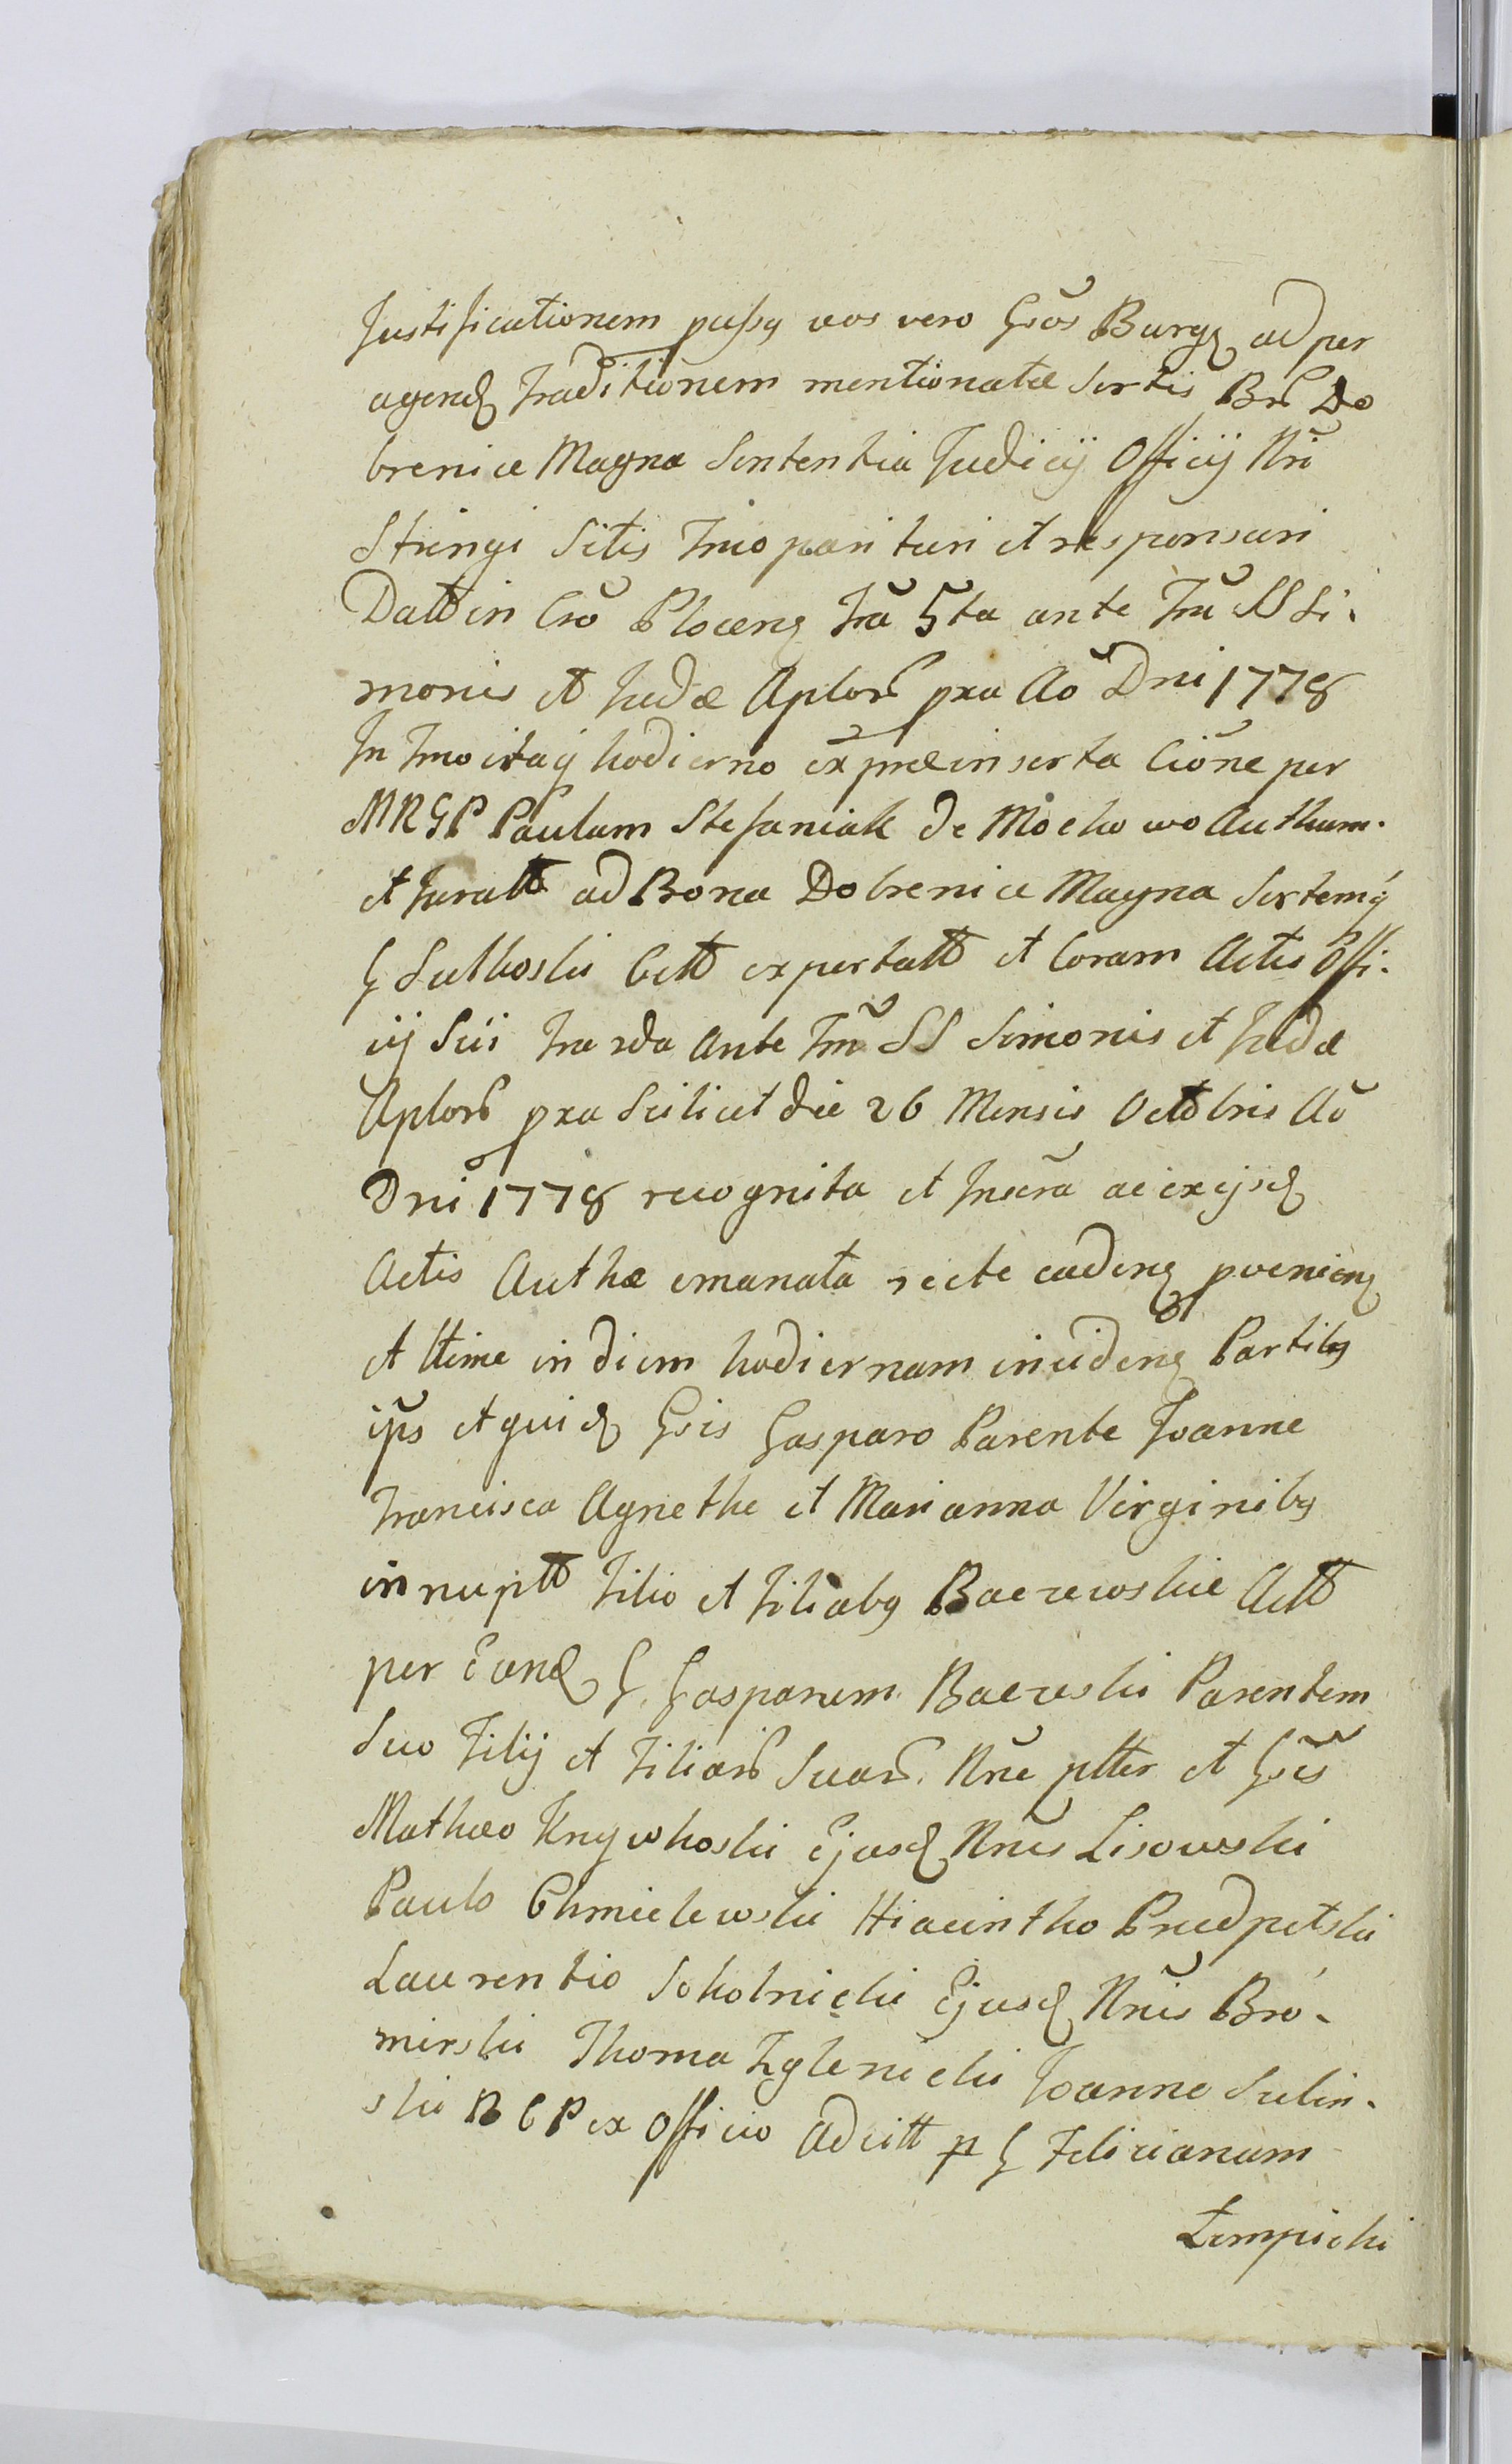 Justificationem passq vos vero Gsos Burgq ad per
agendq Traditionem mentionatæ Sortis Brū Do
brenice Magna Sententia Judicij Officij Nri
Stringi Sitis Tmo parituri et responsuri
Datt in Cro Plocenq Fra 5ta ante Fm SS Si.
monis et Judæ Aplorū pxa Ao Dni 1778
In Tmo itaq hodierno ex præinserta Cione per
MRGP Paulum Stefaniak de Mochowo Authum.
et Juratt ad Bona Dobrenice Magna Sortemq
G Sutkoski Citt exportatt et Coram Actis Offi.
cij Sui Fra 2da Ante Fm SS Simonis et Judæ
Aplorū pxa Scilicet die 26 Mensis Octobris Ao
Dni 1778 recognita et Inscra ac ex ijsdq
Actis Authæ emanata recte cadenq pvenienq
et ltime in diem hodiernam incidenq Partibq
ips et quidq Gsis Gasparo Parente Joanne
Francisca Agnethe et Marianna Virginibq
innuptt Filio et Filiabq Baczewskie Actt
per Eundq G. Gasparum Baczeski Parentem
Suo Filij et Filiarū Suarū Nne pltter et Gsis
Mathæo Krzywkoski Ejusdq Nnis Lisowski
Paulo Chmielewski Hiacintho Przedpełski
Laurentio Sokolnicki Ejusdq Nnis Bro-
mirski Thoma Zglenicki Joanne Sulin-
ski B C P ex Officio Adcitt p G Felicianum
Łempicki